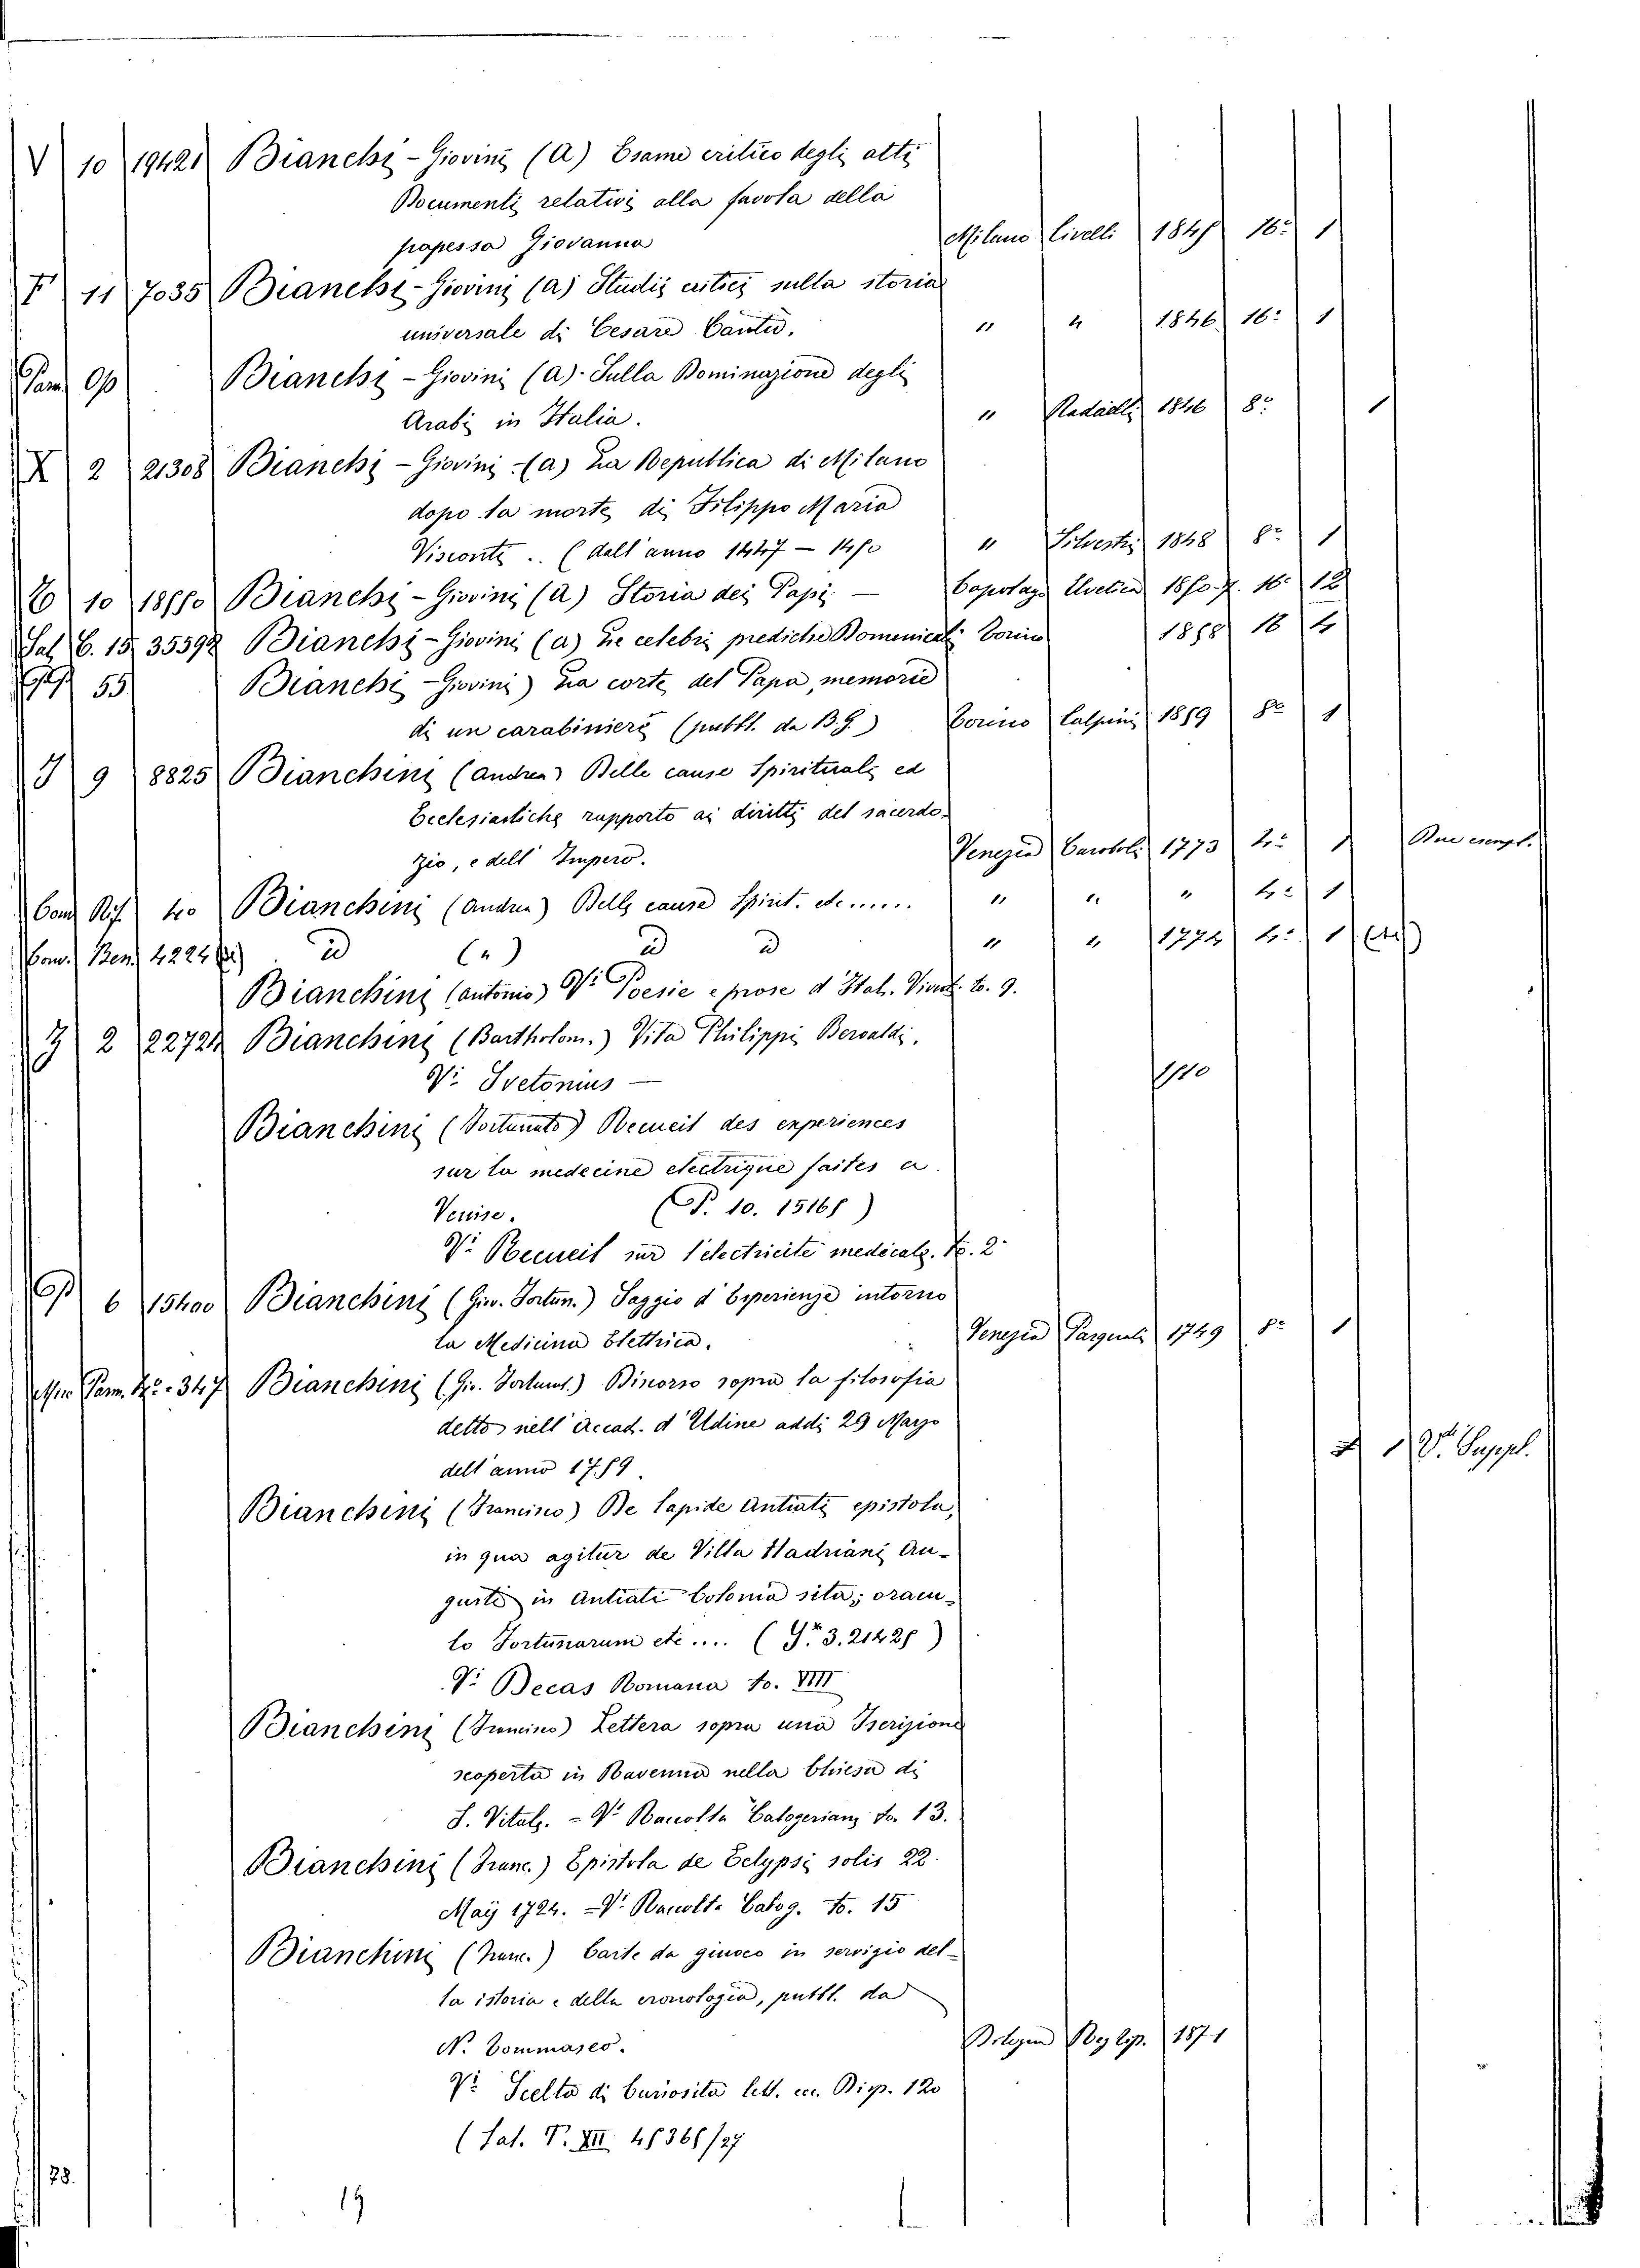 V 10 19421 Bianchi-Giovini (A) Esame critico degli atti
Documenti relativi alla favola della
papessa Giovanna Milano Civelli 1845 16º 1
F 11 7035 Bianchi-Giovini (A) Studii critici sulla storia
universale di Cesare Cantù. " " 1846 16º 1
Pam Op Bianchi-Giovini (A). Sulla Dominazione degli
Arabi in Italia. " Radaelli 1846 8º 1
X 2 21308 Bianchi-Giovini (A) La Republica di Milano
dopo la morte di Filippo Maria
Visconti .. (dall'anno 1447 – 1450 " Silvestri 1848 8º 1
10 18550 Bianchi-Giovini (A) Storia dei Papi — Capolago Elvetica 1850-7. 16º 12
Sal C. 15 35592 Bianchi-Giovini (A) Le celebri prediche Domenicali Torino 1858 16 4
55 Bianchi-Giovini) La corte del Papa, memorie
di un carabiniere (pubbl. da B. G.) Torino Calpini 1859 8º 1
I 9 8825 Bianchini (Andrea) Delle cause Spirituali ed
Ecclesiastiche rapporto ai diritti del sacerdo-
zio, e dell'Impero. Venezia Caroboli 1773 4º 1 Due esempl.
Com Rif. 40 Bianchini (Andrea) Delle cause Spirit. etc...... " " " 4º 1
Com. Ben. 4224 id (") id id " " 1774 4º 1
Bianchini (Antonio) Vi Poesie e prose d'Ital. Vivent. to. 9.
J 2 22724 Bianchini (Bartholom.) Vita Philippi Beroaldi.
Vi Svetonius — 1510
Bianchini (Fortunato) Recueil des experiences
sur la medecine electrique faites a
Venise. (P. 10. 15165)
Vi Recueil sur l'electricité medicale. To. 2º
P 6 15400 Bianchini (Giov. Fortun.) Saggio d'Esperienze intorno
la Medicina Elettrica. Venezia Pasquali 1749 8º 1
Mis Pam. 4º. 347 Bianchini (Gio. Fortunat.) Discorso sopra la filosofia
detto nell'Accad. d'Udine addi 29 Marzo
dell'anno 1759. 1 Vº Suppl.
Bianchini (Francisco) De Lapide Antiati epistola,
in qua agitur de Villa Hadriani Au-
gusti in Antiati Colonia sita; oracu-
lo Fortunarum etc .... (Sr. 3. 21425)
Vi Decas Romana to. VIII
Bianchini (Francisco) Lettera sopra una Iscrizione
scoperta in Ravenna nella Chiesa di
S. Vitale. – Vi Raccolta Calogeriana to. 13.
Bianchini (Franc.) Epistola de Eclypsi solis 22
Maij 1724. – Vi Raccolta Calog. to. 15
Bianchini (Franc.) Carte da giuoco in servigio del-
la istoria e della cronologia, pubbl. da
N. Tommaseo. Bologna Reg Tip. 1871
Vi Scelta di Curiosità lett. ecc. Disp. 120
(Sal. P. XII 45365/27
28.
19